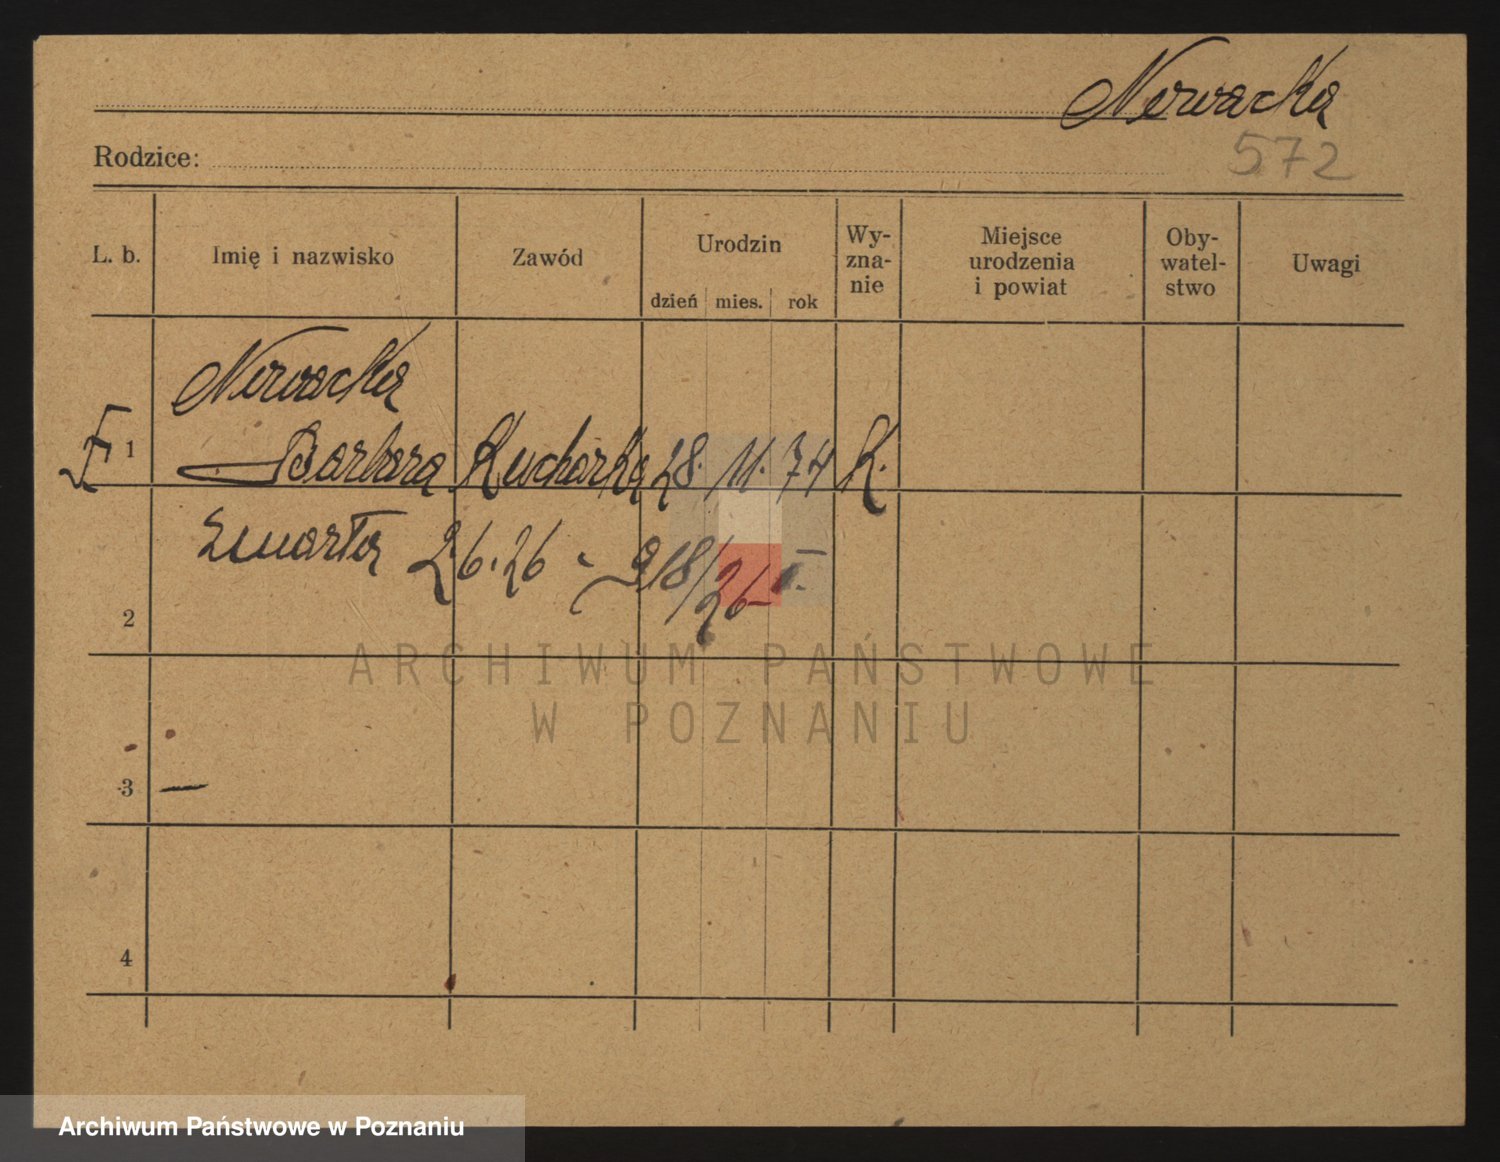 Nerwacka
Rodzice:
572
L. b.
Imię i nazwisko
Zawód
Urodzin
dzień mies. rok
Wy-
zna-
nie
Miejsce
urodzenia
i powiat
Oby-
watel-
stwo
Uwagi
Nerwacka
1 Barbara Kucharka 28. 11. 74 K.
zmarła 26.26 - 918/26
2
3 —
4
ARCHIWUM PAŃSTWOWE
W POZNANIU
Archiwum Państwowe w Poznaniu